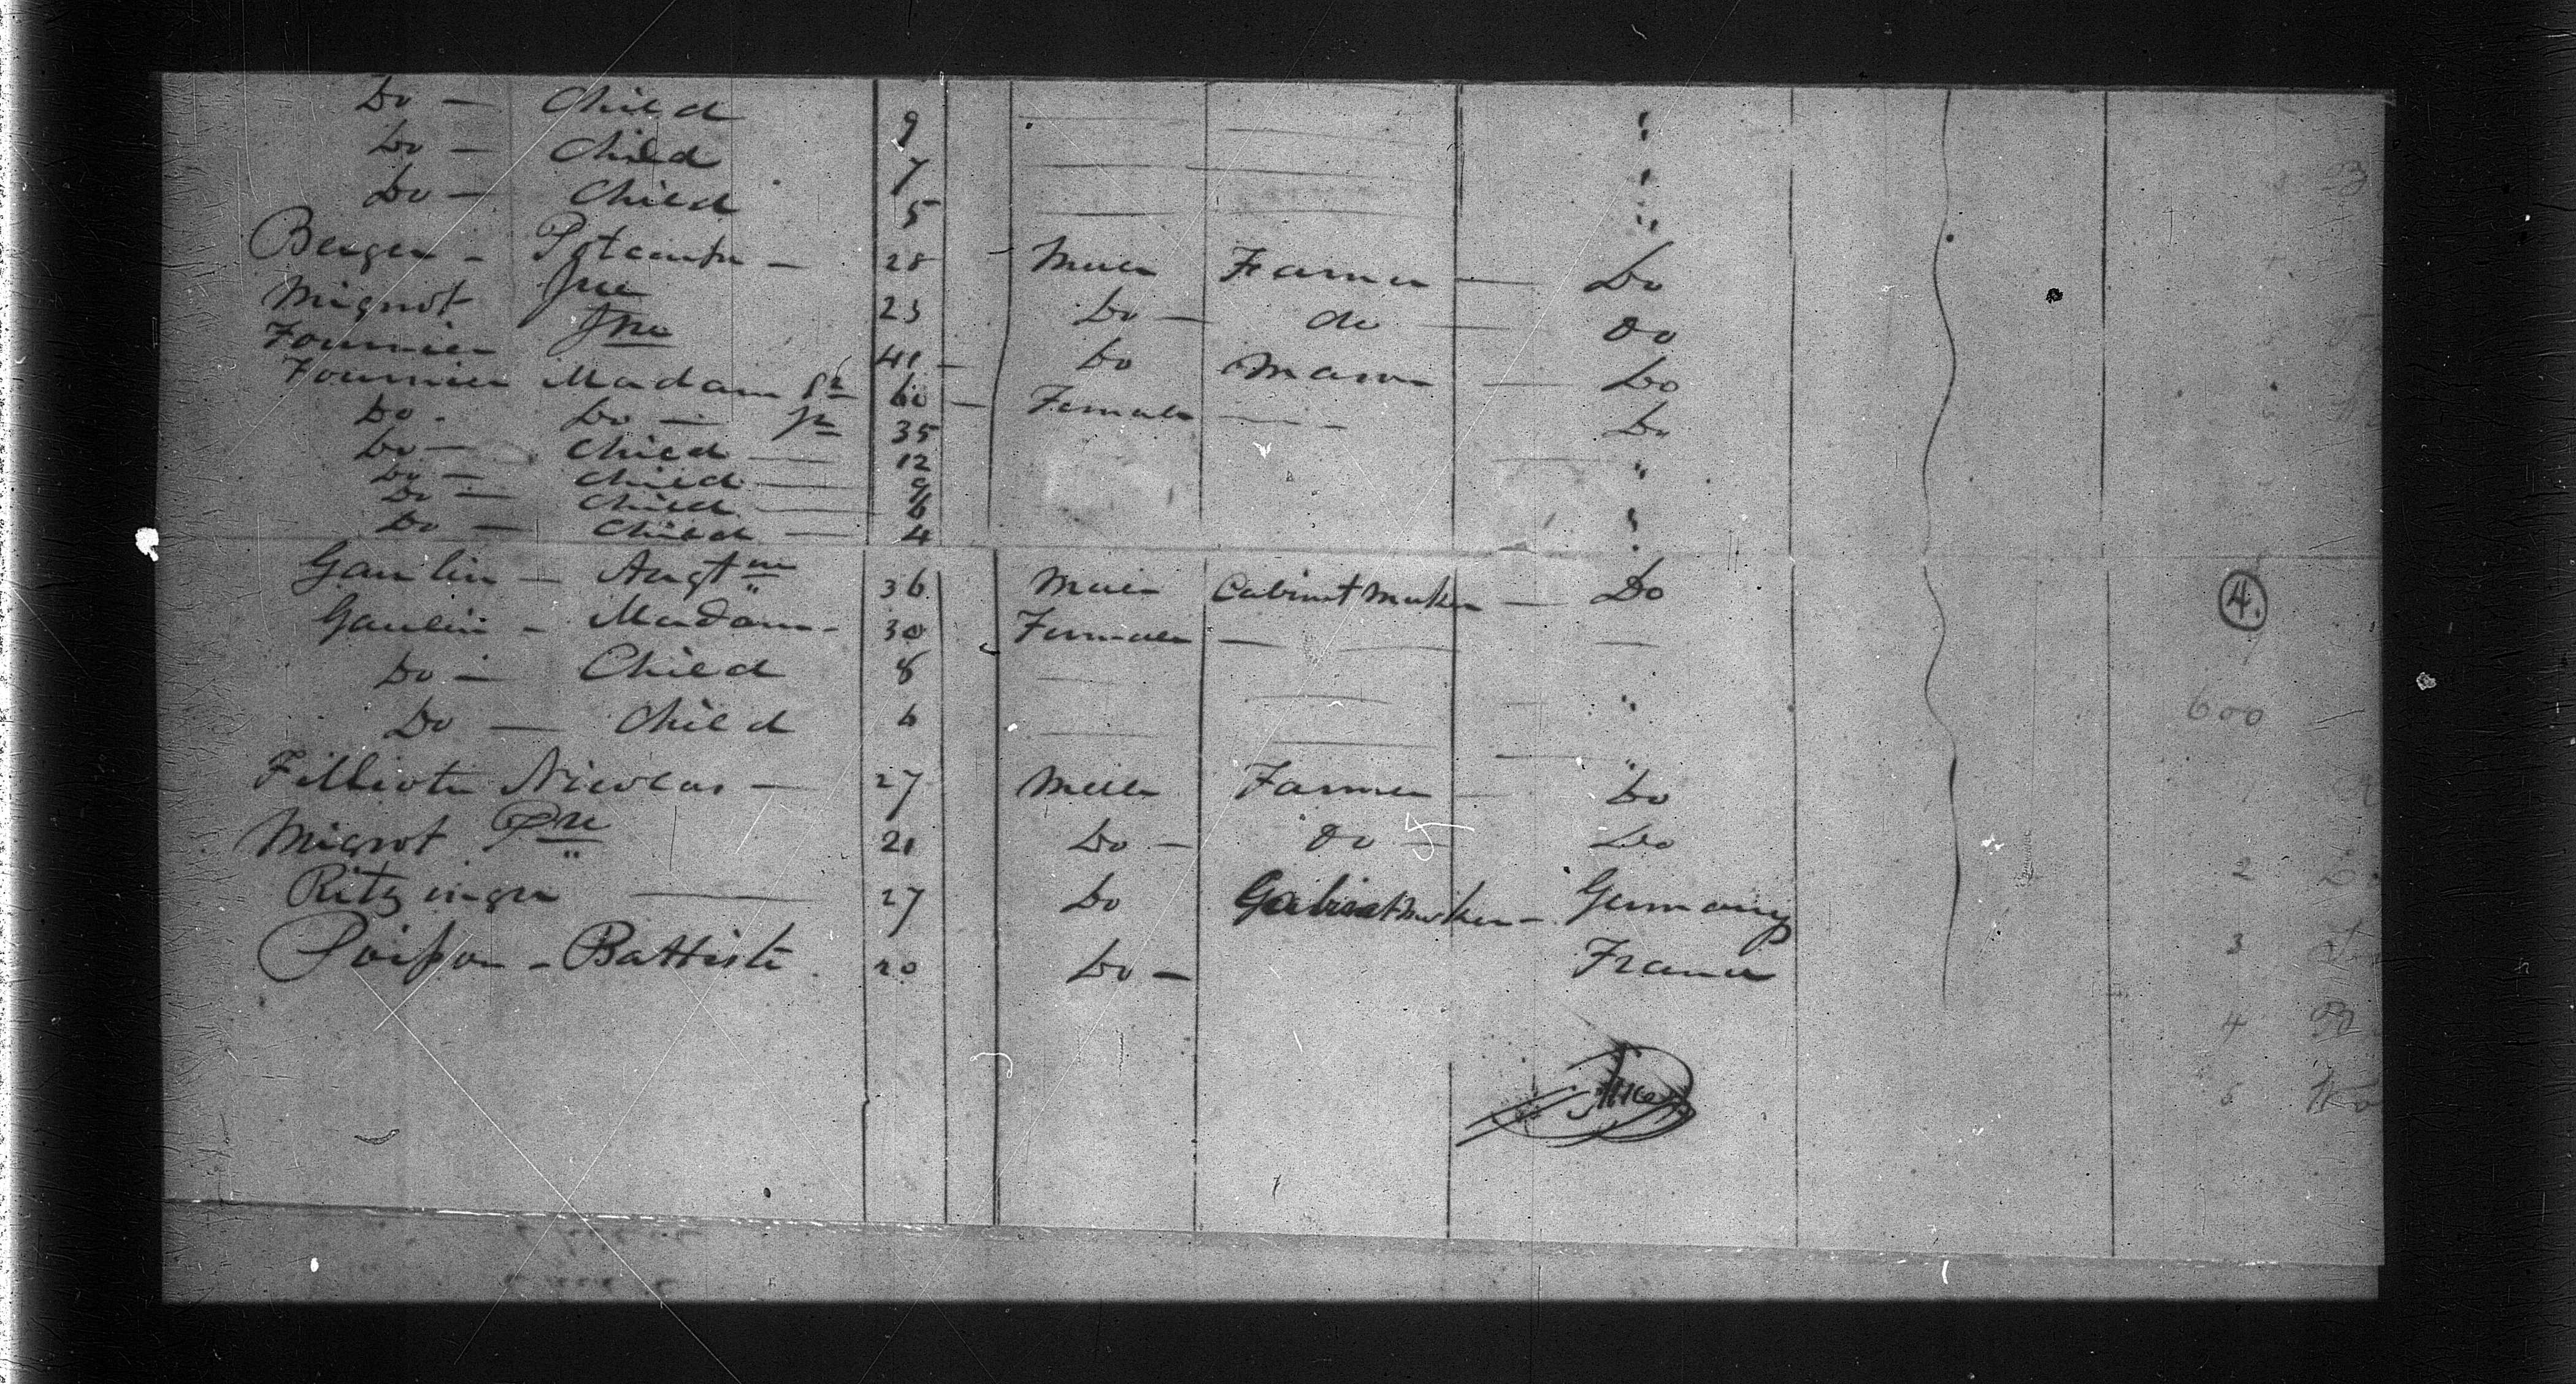 Do — Child 9 "
Do — Child 7 "
Do — Child 5 "
Berger - 28 Male Farmer — Do
Mignot Jne 23 Do — do — Do
Fournier Jne 41 — Do Mason — Do
Fournier Madam Sr 60 — Female — Do
Do - Do — Jr 35
Do — Child — 12 "
Do — Child — 9
Do — Child — 6 "
Do — Child — 4 "
Gaulin — Augtin 36 Male Cabinet Maker — Do
Gaulin - Madam - 30 Female — —
Do — Child 8 "
Do — Child 6 "
Filliote Nicolas — 27 Male Farmer — Do
Mignot Pre 21 Do — Do — Do
Ritzinger — 27 Do Cabinet Maker — Germany
Poisson - Battiste 20 Do — France
4.
600
2
3
4
5